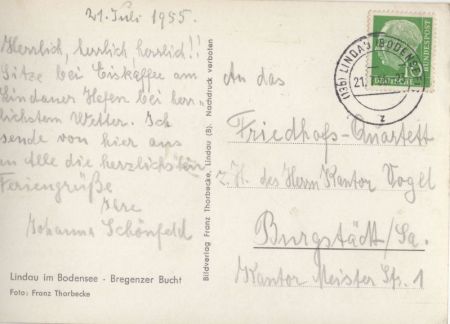 21. Juli 1955.
Herrlich, herrlich, herrlich!!
Sitze bei Eiskaffee am
Lindauer Hafen bei herr-
lichstem Wetter. Ich
sende von hier aus
an Alle die herzlichsten
Feriengrüße
Ihre
Johanna Schönfeld
Lindau im Bodensee - Bregenzer Bucht
Foto: Franz Thorbecke
Bildverlag Franz Thorbecke, Lindau (B). Nachdruck verboten
(13b) LINDAU (BODENSEE)
21.
z
DEUTSCHE BUNDESPOST
An das
Friedhofs-Quartett
z. H. des Herrn Kantor Vogel
Burgstädt/Sa.
Kantor Meister Sp. 1